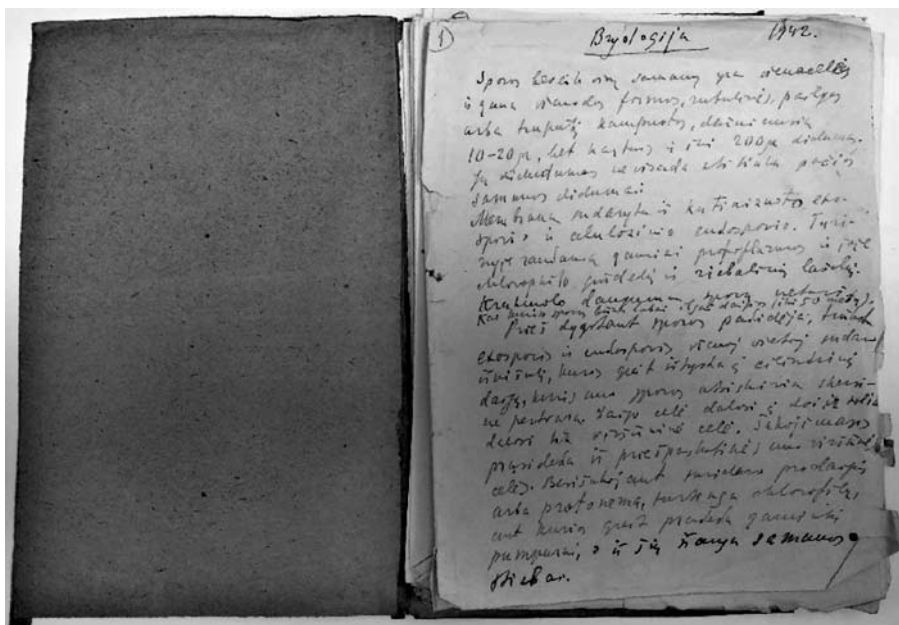 1) Bryologija 1942.
Sporos beveik visų samanų yra vienaceliės
ir gana vienodos formos, rutulinės, pailgos
arba truputį kampuotos, dažniausiai
10-20 μ, bet kartais ir iki 200 μ didumo.
Jų didumas ne visada atitinka pačios
samanos didumui.
Membrana sudaryta iš kutinizuotos ekso-
sporio ir celiulozinio endosporio.
randama gaminiai protoplazmos ir joje
chlorophilo grūdelių ir riebalinių lašelių.
Krakmolo dauguma sporų neturi.
Kai kurios sporos būna labai ilgai daigios (iki 50 metų).
Prieš dygstant sporos padidėja, trūksta
eksosporis ir endosporis vienoj vietoj sudaro
kuris greit ištysta į cilindrinį
daigą, kuris nuo sporos atsiskiria skersi-
ne pertvara. Daigo celė dalosi į dvi ir toliau
dalosi tik viršūninė celė. Šakojimasis
prasideda iš priešpaskutinės nuo viršūnės
celės. Besišakojant susidaro prodaigis
arba protonema, turtinga chlorofilu,
ant kurios greit pradeda gamintis
pumpurai, o iš jų išauga samanos
stiebai.